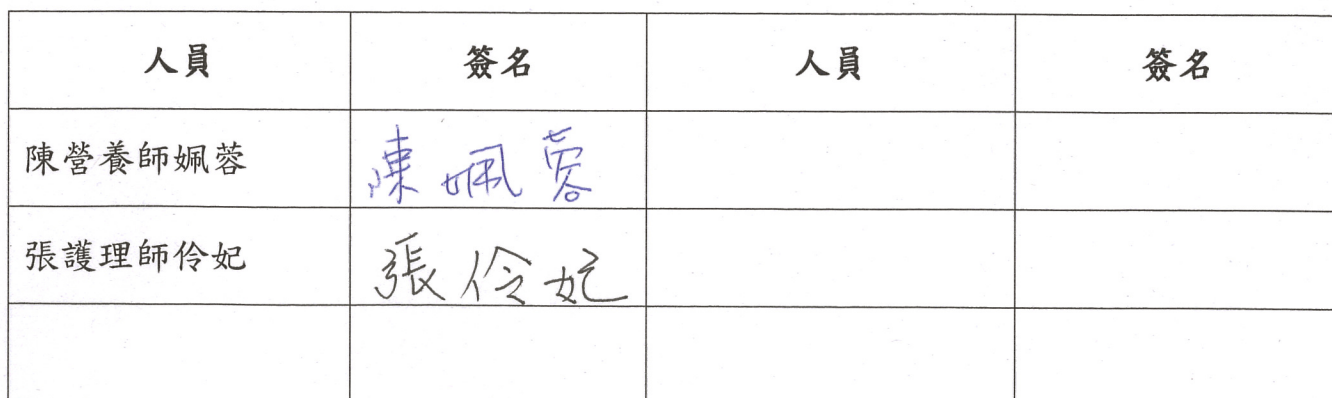 人員 簽名 人員 簽名
陳營養師姵蓉 陳姵蓉
張護理師伶妃 張伶妃